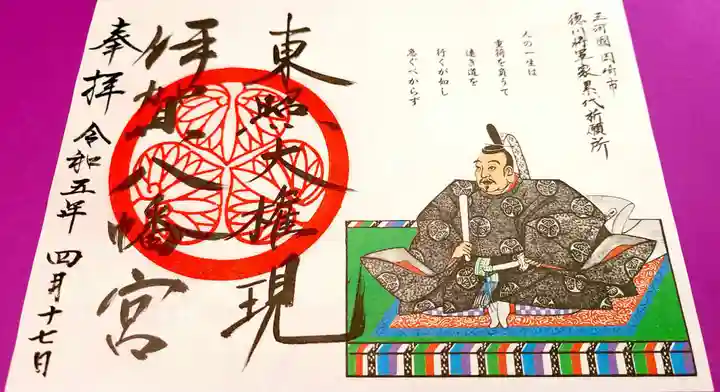 三河國岡崎市
徳川将軍家累代祈願所
人の一生は
重荷を負うて
遠き道を
行くが如し
急ぐべからず
東照大権現
伊賀八幡宮
奉拝 令和五年 四月十七日